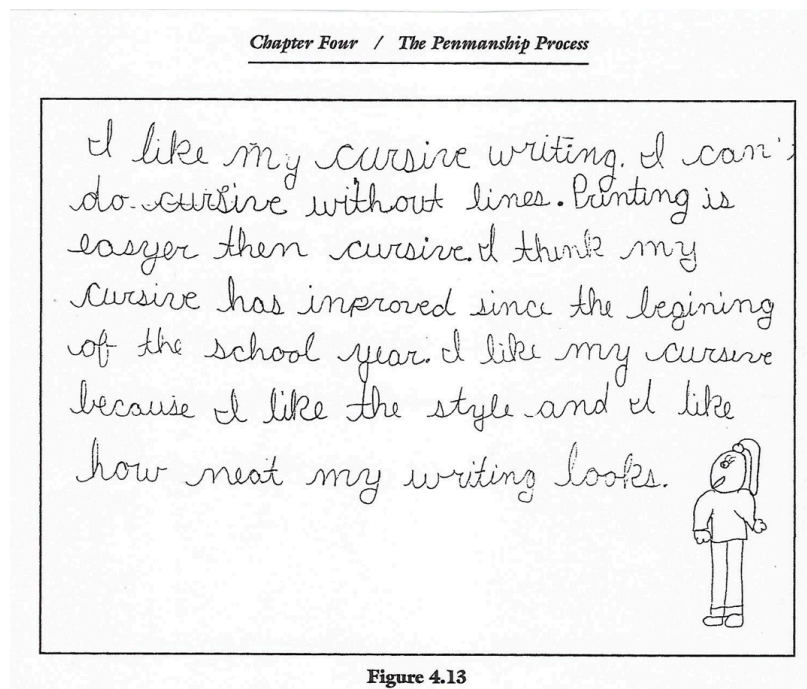 Chapter Four / The Penmanship Process
I like my cursive writing. I can'
do cursive without lines. Printing is
easyer then cursive. I think my
cursive has inproved since the begining
of the school year. I like my cursive
because I like the style and I like
how neat my writing looks.
Figure 4.13